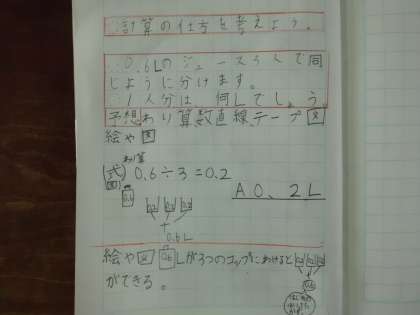 計算の仕方を考えよう。
0.6Lのジュース3人で同
じように分けます。
1人分は何Lでしょう。
予想わり算数直線テープ図
絵や図
わり算
(式) 0.6÷3=0.2
(図)
0.6
0.2 0.2 0.2
A 0.2L
0.6L
絵や図 0.6Lが3つのコップにわけると
ができる。
0.2 0.2 0.2
0.6